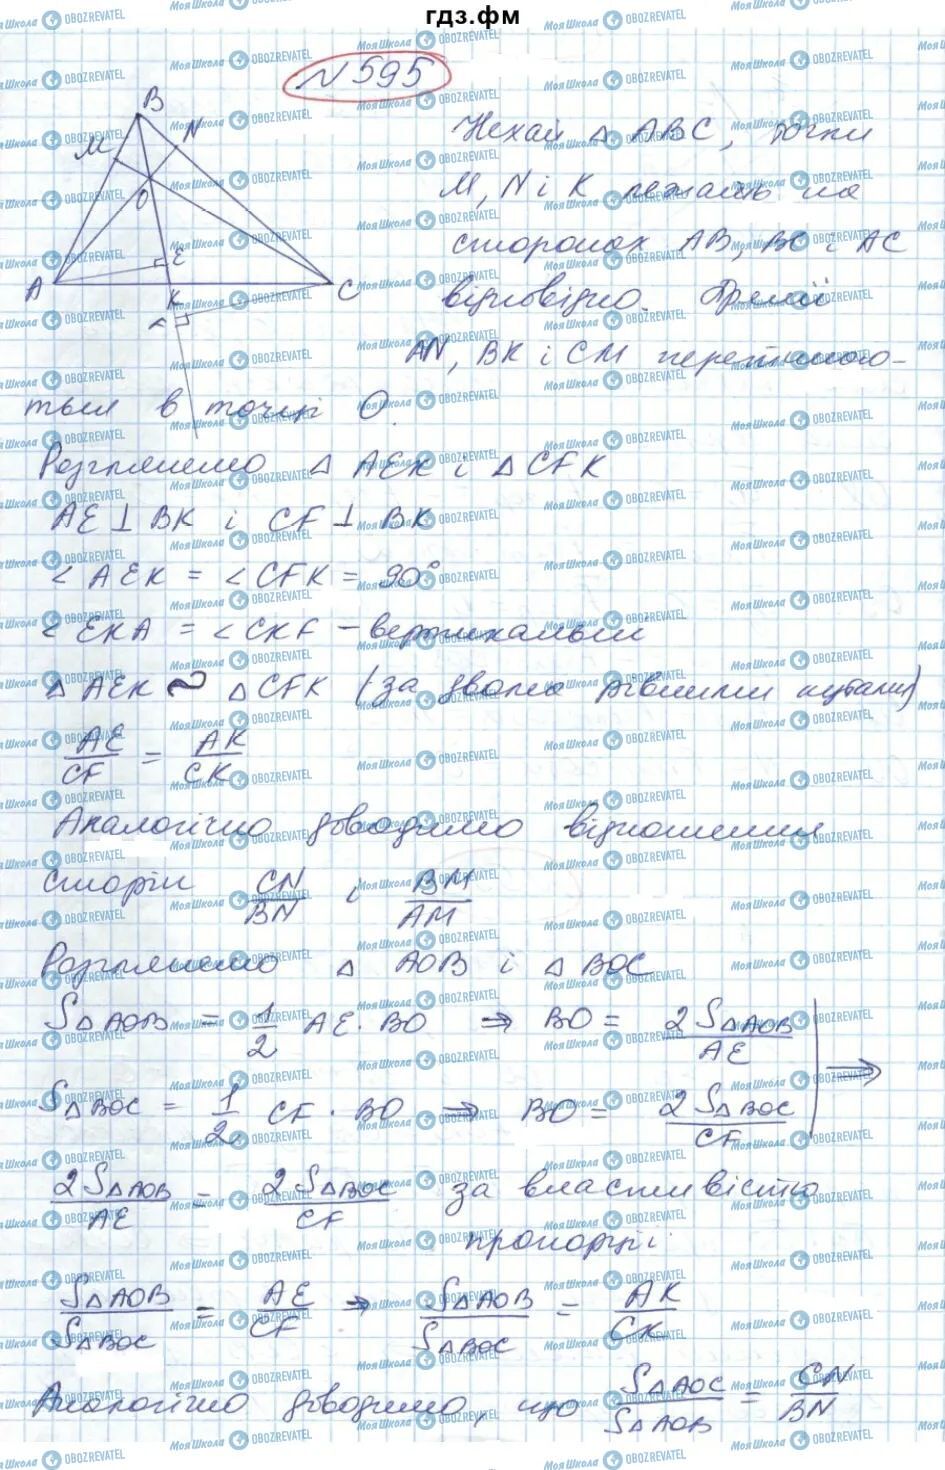 гдз.фм
N 595
B
M
N
O
E
A
K
C
F
Нехай △ ABC, точки
M, N і K лежать на
сторонах AB, BC і AC
відповідно. Прямі
AN, BK і CM перетинаю-
ться в точці O.
Розглянемо △ AEK і △ CFK
AE ⊥ BK і CF ⊥ BK
< AEK = < CFK = 90°
< EKA = < CKF – вертикальні
△ AEK ~ △ CFK (за двома рівними кутами)
AE/CF = AK/CK
Аналогічно доводимо відношення
сторін CN/BN і BM/AM
Розглянемо △ AOB і △ BOC
S△AOB = 1/2 AE · BO ⇒ BO = 2S△AOB/AE
S△BOC = 1/2 CF · BO ⇒ BO = 2S△BOC/CF ⇒
2S△AOB/AE = 2S△BOC/CF за властивістю
пропорції
S△AOB/S△BOC = AE/CF ⇒ S△AOB/S△BOC = AK/CK
Аналогічно доводимо, що S△AOC/S△AOB = CN/BN